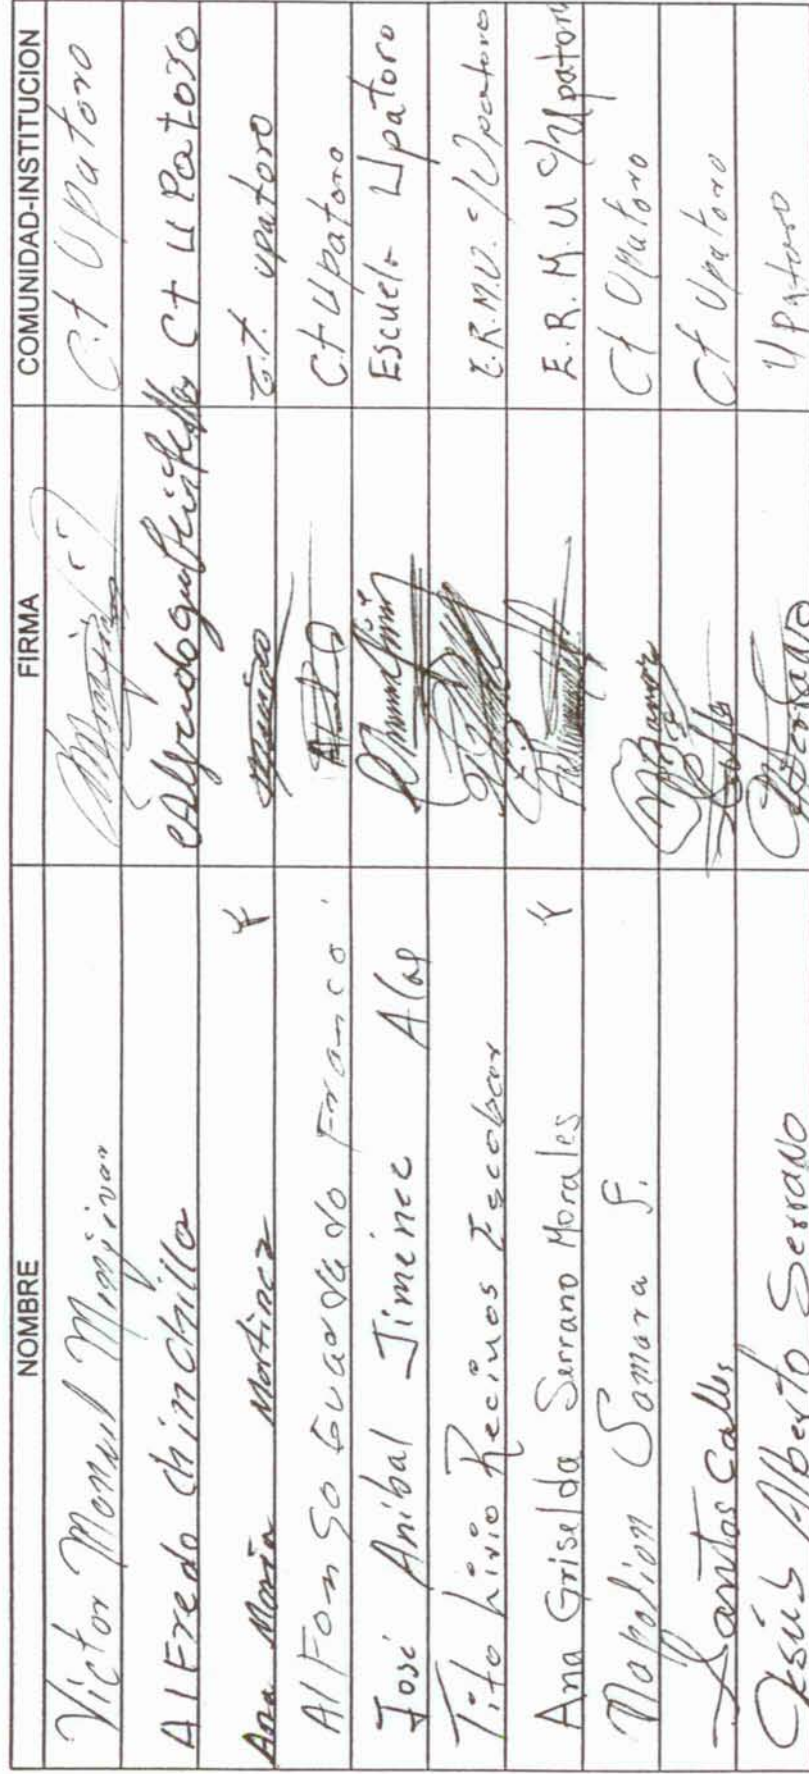 NOMBRE FIRMA COMUNIDAD-INSTITUCION
Victor Manuel Menjivar C.t Upatoro
AlFredo chinchilla Ct UPatoro
Ana Maria Martinez C.t. upatoro
AlFonso Guardado Franco C.t Upatoro
José Aníbal Jimenez Alas Escuela Upatoro
Tito Livio Recinos Escobar E.R.M.U. c/Upatoro
Ana Griselda Serrano Morales E.R.M.U c/Upatoro
Napolion Samara Ct Upatoro
Santos Calles Ct Upatoro
Jesús Alberto Serrano Upatoro